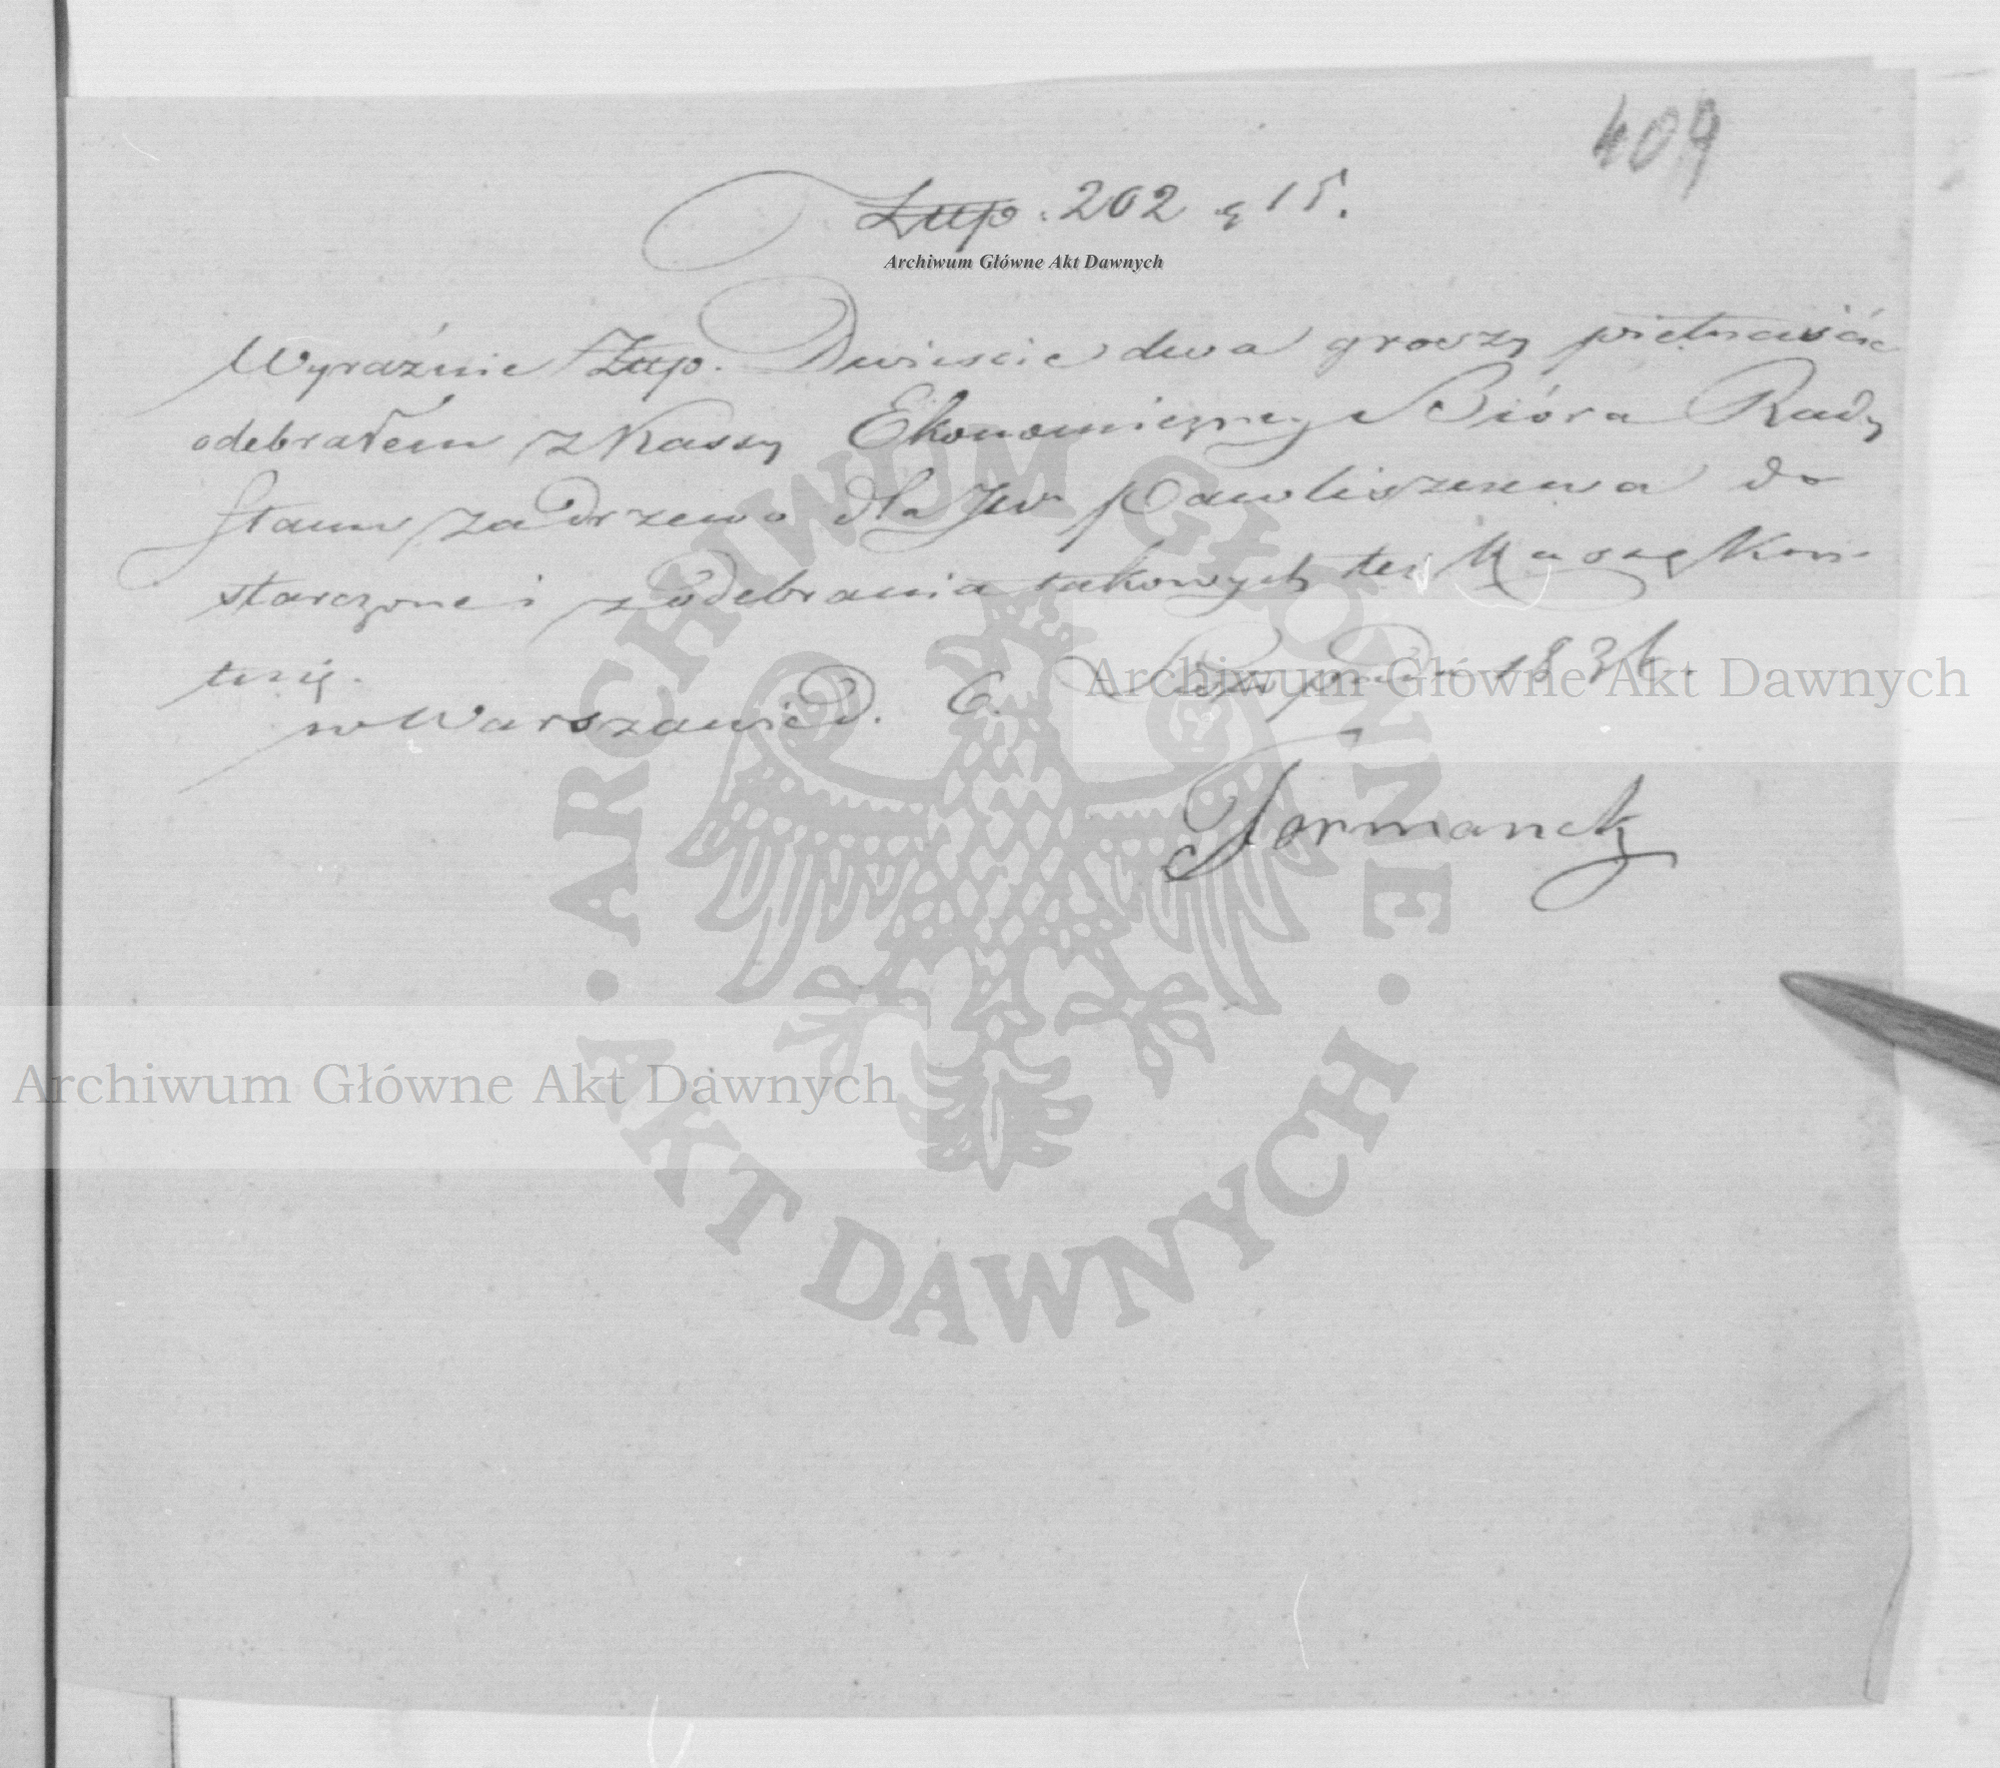 409
Złłp. 202 g 15.
Archiwum Główne Akt Dawnych
Wyraźnie Złłp. Dwieście dwa groszy piętnaście
odebrałem z Kassy Ekonomicznej Bióra Rady
Stanu za Drzewo dla JW Pawliszczewa do
starczone i z odebrania takowych też Kassę Kwi
tuię.
w Warszawie d. 6. Sierpnia 1836.
Archiwum Główne Akt Dawnych
Formancki
Archiwum Główne Akt Dawnych
ARCHIWUM GŁÓWNE
AKT DAWNYCH